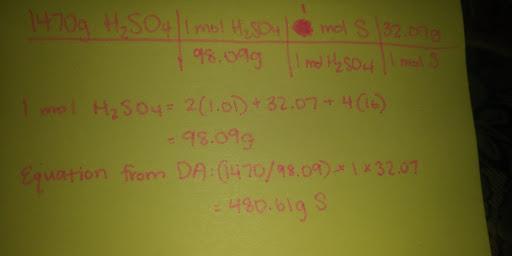 1470g H₂SO₄ | 1 mol H₂SO₄ | 1 mol S | 32.07g
98.09g | 1 mol H₂SO₄ | 1 mol S
1 mol H₂SO₄ = 2(1.01) + 32.07 + 4(16)
= 98.09g
Equation from DA: (1470/98.09) × 1 × 32.07
= 480.61g S